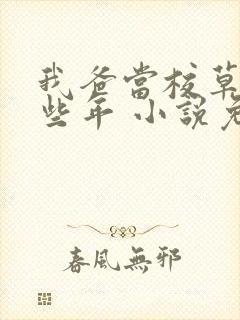 我爸當校草
些年 小說免
春風無邪